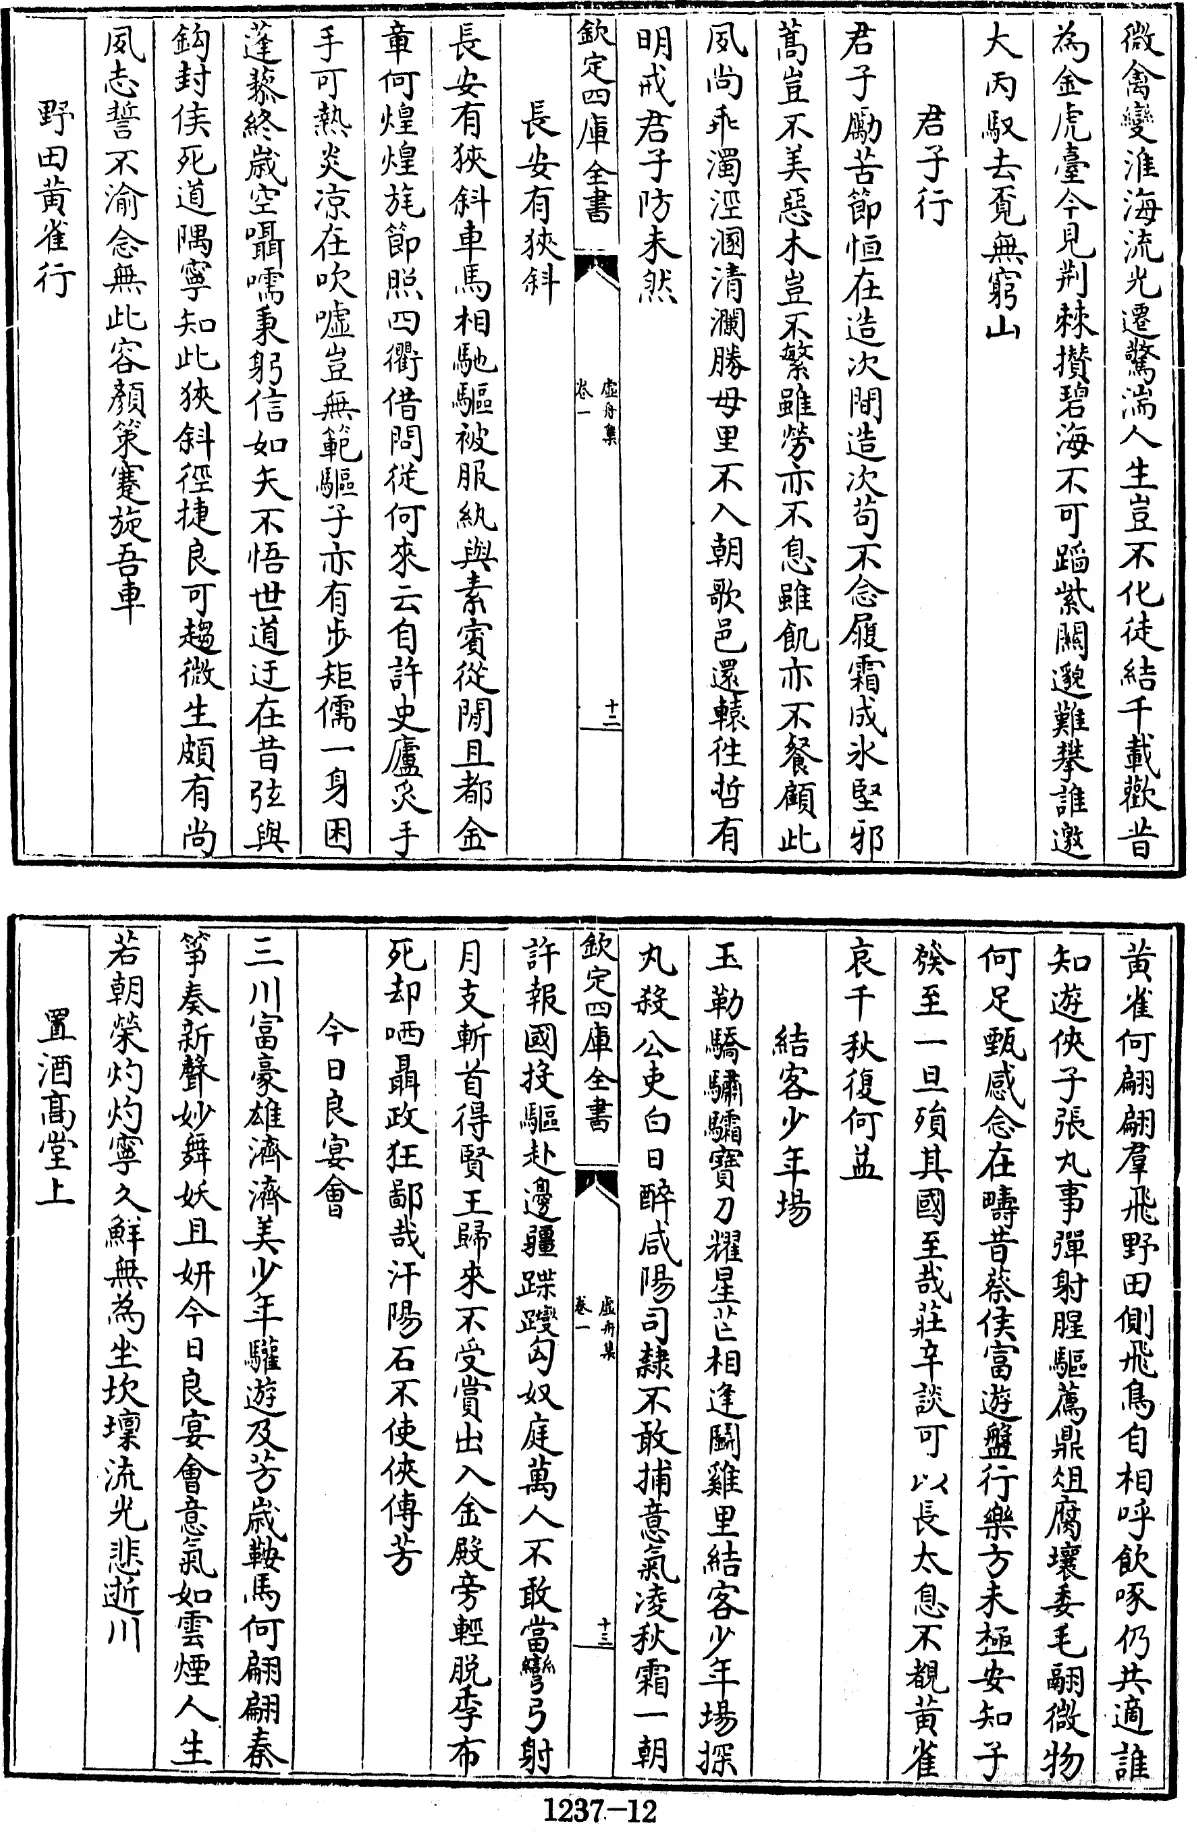 微禽變淮海流光遷驚湍人生豈不化徒結千載歡昔
為金虎臺今見荆棘攅碧海不可蹈紫闕邈難攀誰邀
大丙馭去覓無窮山
君子行
君子勵苦節恒在造次間造次苟不念履霜成氷堅邪
蒿豈不美惡木豈不繁雖勞亦不息雖飢亦不餐顧此
風尚乖濁涇溷清瀾勝母里不入朝歌邑還轅徃哲有
明戒君子防未然
欽定四庫全書
虛舟集
卷一
十二
長安有狹斜
長安有狹斜車馬相馳驅被服紈與素賓從閒且都金
章何煌煌旄節照四衢借問從何來云自許史廬炙手
手可熱炎凉在吹噓豈無範驅子亦有步矩儒一身困
蓬藜終嵗空囁嚅秉躬信如矢不悟世道迂在昔弦與
鈎封侯死道隅寧知此狹斜徑捷良可趨微生頗有尚
夙志誓不渝念無此容顏策蹇旋吾車
野田黃雀行
黃雀何翩翩羣飛野田側飛鳥自相呼飲啄仍共適誰
知遊俠子張丸事彈射腥軀薦鼎俎腐壤委毛翮微物
何足甄感念在疇昔蔡侯富遊盤行樂方未極安知子
發至一旦殞其國至哉莊辛談可以長太息不覩黃雀
哀千秋復何益
結客少年塲
玉勒驕驌驦寶刀耀星芒相逢鬭雞里結客少年塲探
丸殺公吏白日醉咸陽司隸不敢捕意氣凌秋霜一朝
欽定四庫全書
虛舟集
卷一
十三
許報國投軀赴邊疆蹀躞匈奴庭萬人不敢當彎弓射
月支斬首得賢王歸來不受賞出入金殿旁輕脱季布
死却哂聶政狂鄙哉汗陽石不使俠傳芳
今日良宴會
三川富豪雄濟濟美少年驩遊及芳嵗鞍馬何翩翩秦
筝奏新聲妙舞妖且妍今日良宴會意氣如雲煙人生
若朝榮灼灼寧久鮮無為坐坎壈流光悲逝川
置酒高堂上
1237-12